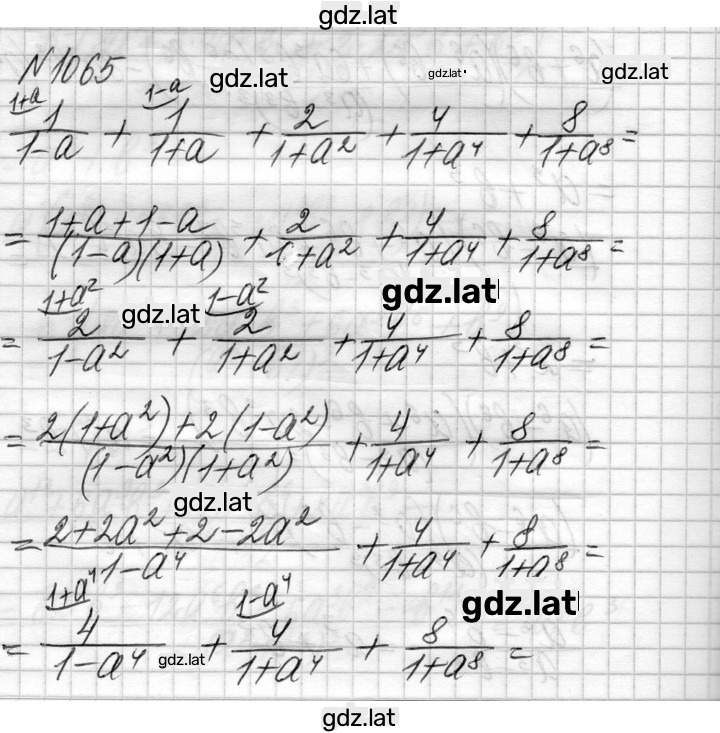 gdz.lat
N 1065 gdz.lat gdz.lat gdz.lat
1+a 1-a
1/(1-a) + 1/(1+a) + 2/(1+a²) + 4/(1+a⁴) + 8/(1+a⁸) =
= (1+a+1-a)/((1-a)(1+a)) + 2/(1+a²) + 4/(1+a⁴) + 8/(1+a⁸) =
gdz.lat
1+a² gdz.lat 1-a²
= 2/(1-a²) + 2/(1+a²) + 4/(1+a⁴) + 8/(1+a⁸) =
= (2(1+a²)+2(1-a²))/((1-a²)(1+a²)) + 4/(1+a⁴) + 8/(1+a⁸) =
gdz.lat
= (2+2a²+2-2a²)/(1-a⁴) + 4/(1+a⁴) + 8/(1+a⁸) =
1+a⁴ 1-a⁴ gdz.lat
= 4/(1-a⁴) + 4/(1+a⁴) + 8/(1+a⁸) =
gdz.lat
gdz.lat